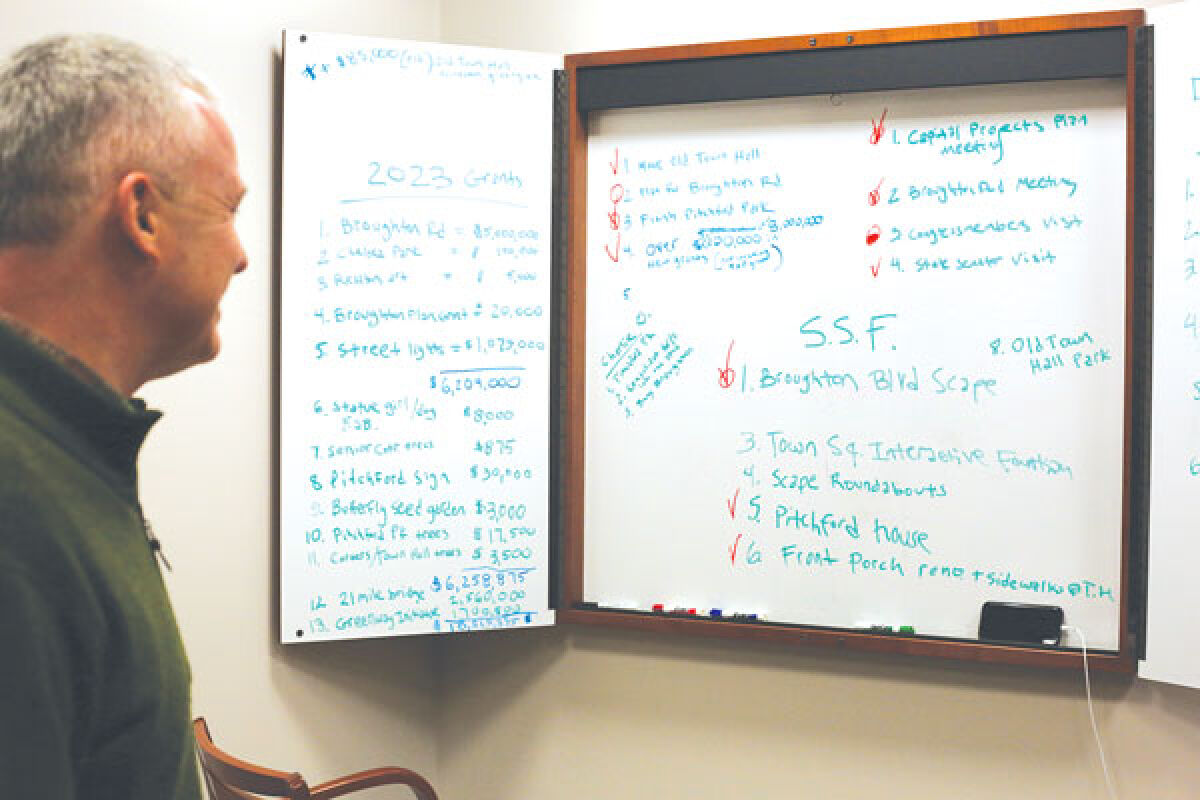 + $85,000 Old Town Hall
2023 Grants
1. Broughton Rd = $5,000,000
2. Chelsea Park = $
3. = $ 5,000
4. Broughton Plan Grant $ 20,000
5. Street lights = $1,023,000
$6,209,000
6. Statue girl/dog $8,000
7. Senior Car trees $875
8. Pitchford Sign $30,000
9. Butterfly seed garden $3,000
10. Pitchford Pk trees $17,500
11. Corners/Town Hall trees $3,500
$6,258,875
12. 21 mile bridge 2,560,000
13. Greenway
1 Move Old Town Hall
2 Plan for Broughton Rd
3 Finish Pitchford Park
4. Over $820,000 $3,000,000
new grants
5.
1. Capital Projects Plan
Meeting
2 Broughton Rd Meeting
3 Congressmembers visit
4. State Senator visit
S.S.F.
1. Broughton Blvd Scape
8. Old Town
Hall Park
3. Town Sq. Interactive Fountain
4. Scape Roundabouts
5. Pitchford House
6. Front Porch reno + sidewalk @ T.H